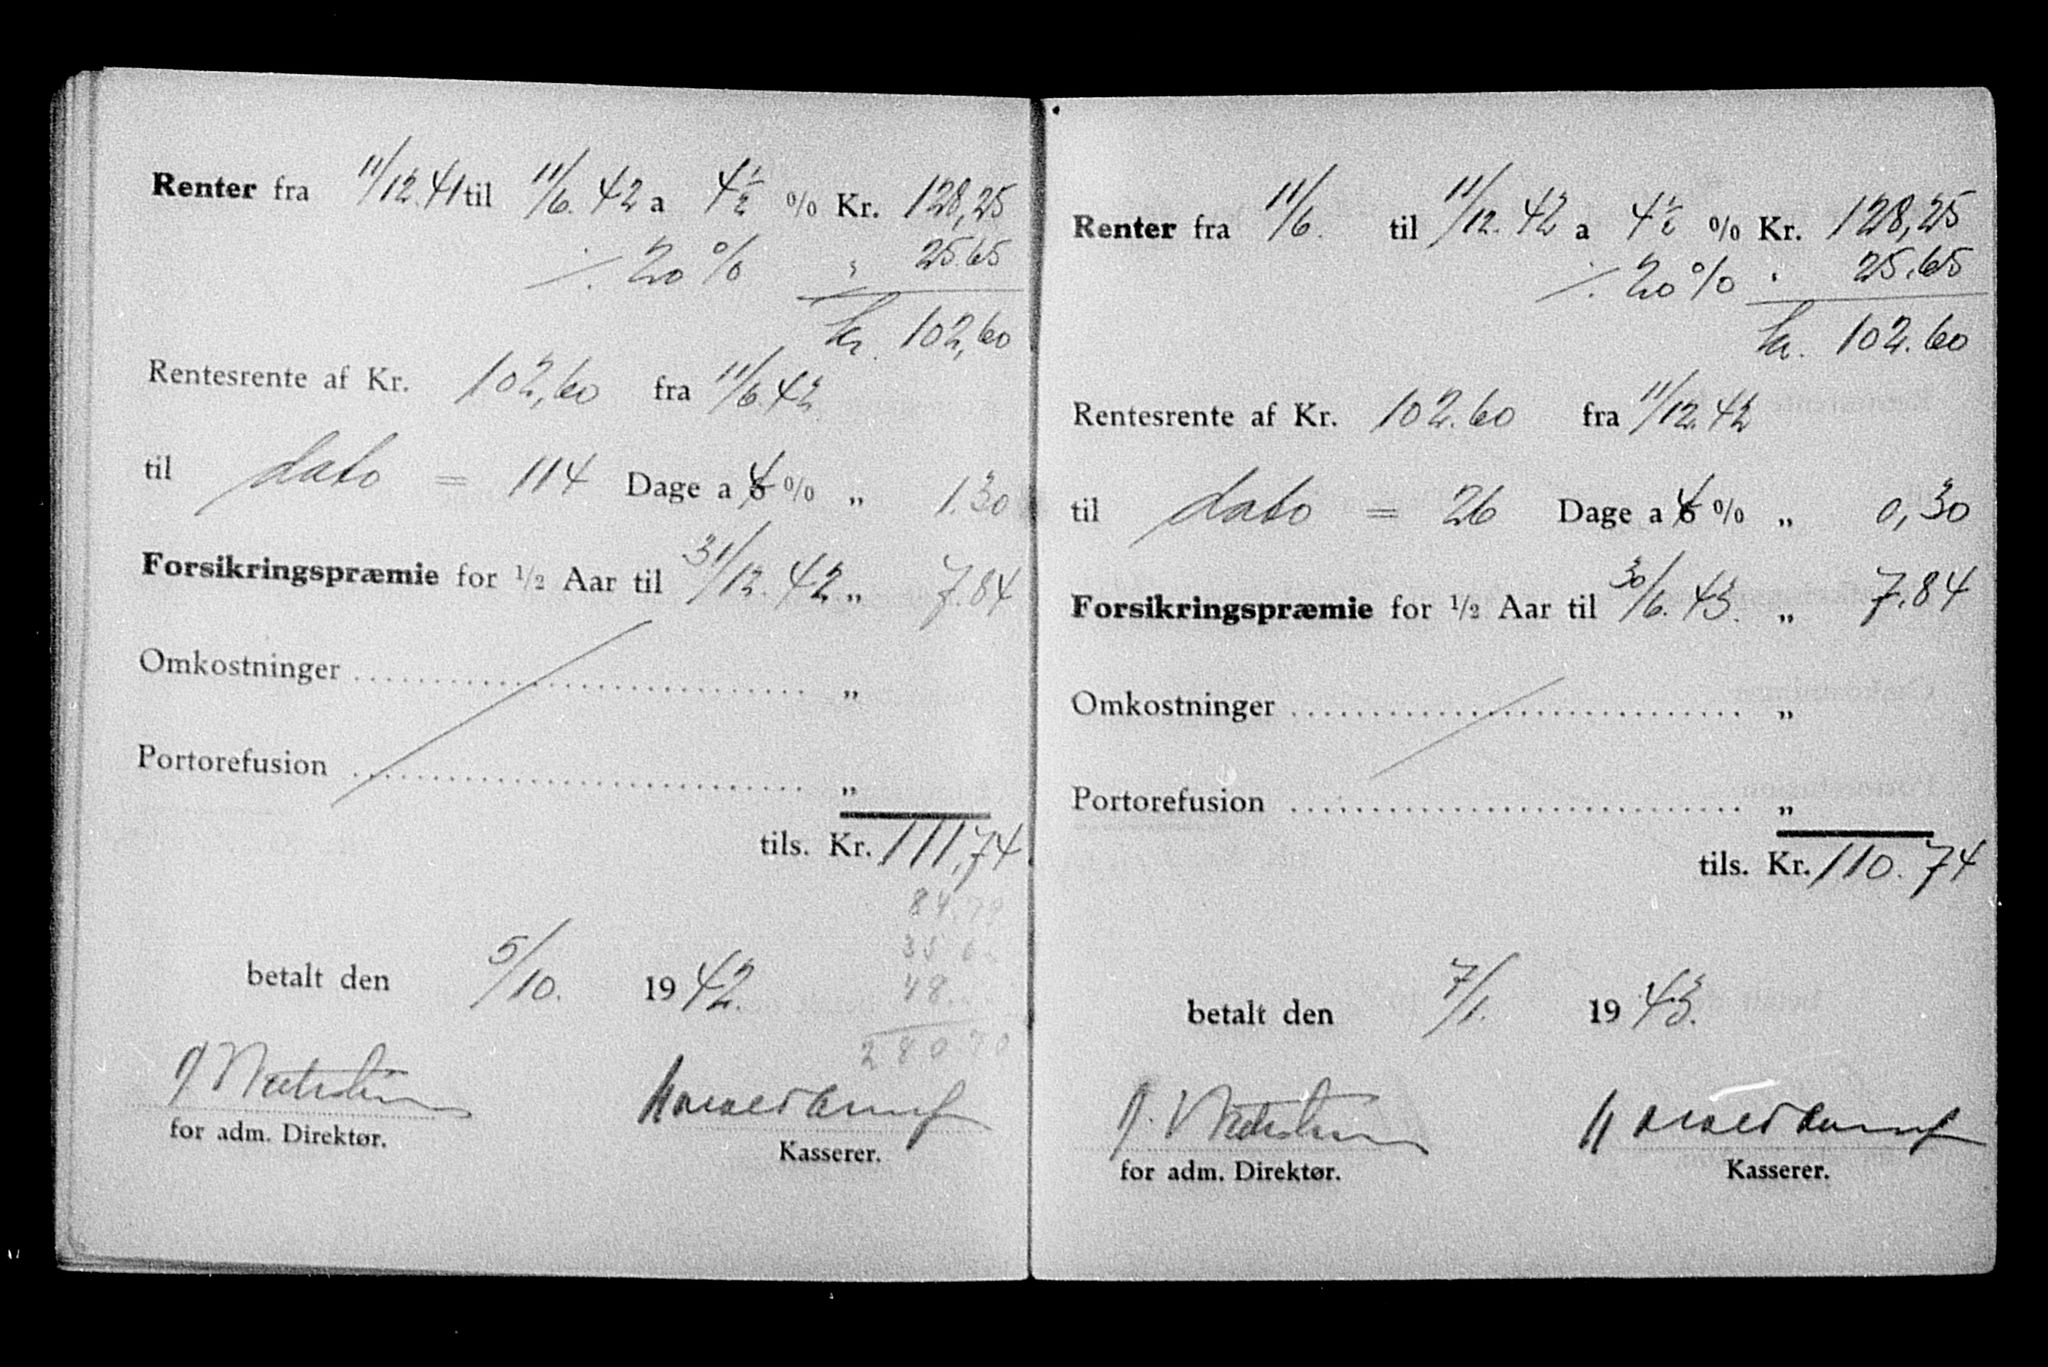 Renter fra 11/12.41 til 11/6.42 a 4 1/2 % Kr. 128,25
./. 20 % " 25.65
kr. 102,60
Rentesrente af Kr. 102,60 fra 11/6.42
til dato = 114 Dage a 4 % „ 1.30
Forsikringspræmie for 1/2 Aar til 31/12.42 „ 7.84
Omkostninger „
Portorefusion „
tils. Kr. 111,74
84.79
48.
280.70
betalt den 5/10. 1942.
for adm. Direktør.
Kasserer.
Renter fra 11/6. til 11/12.42 a 4 1/2 % Kr. 128,25
./. 20 % " 25.65
kr. 102.60
Rentesrente af Kr. 102.60 fra 11/12.42
til dato = 26 Dage a 4 % „ 0,30
Forsikringspræmie for 1/2 Aar til 30/6.43. „ 7.84
Omkostninger „
Portorefusion „
tils. Kr. 110.74
betalt den 7/1. 1943.
for adm. Direktør.
Kasserer.